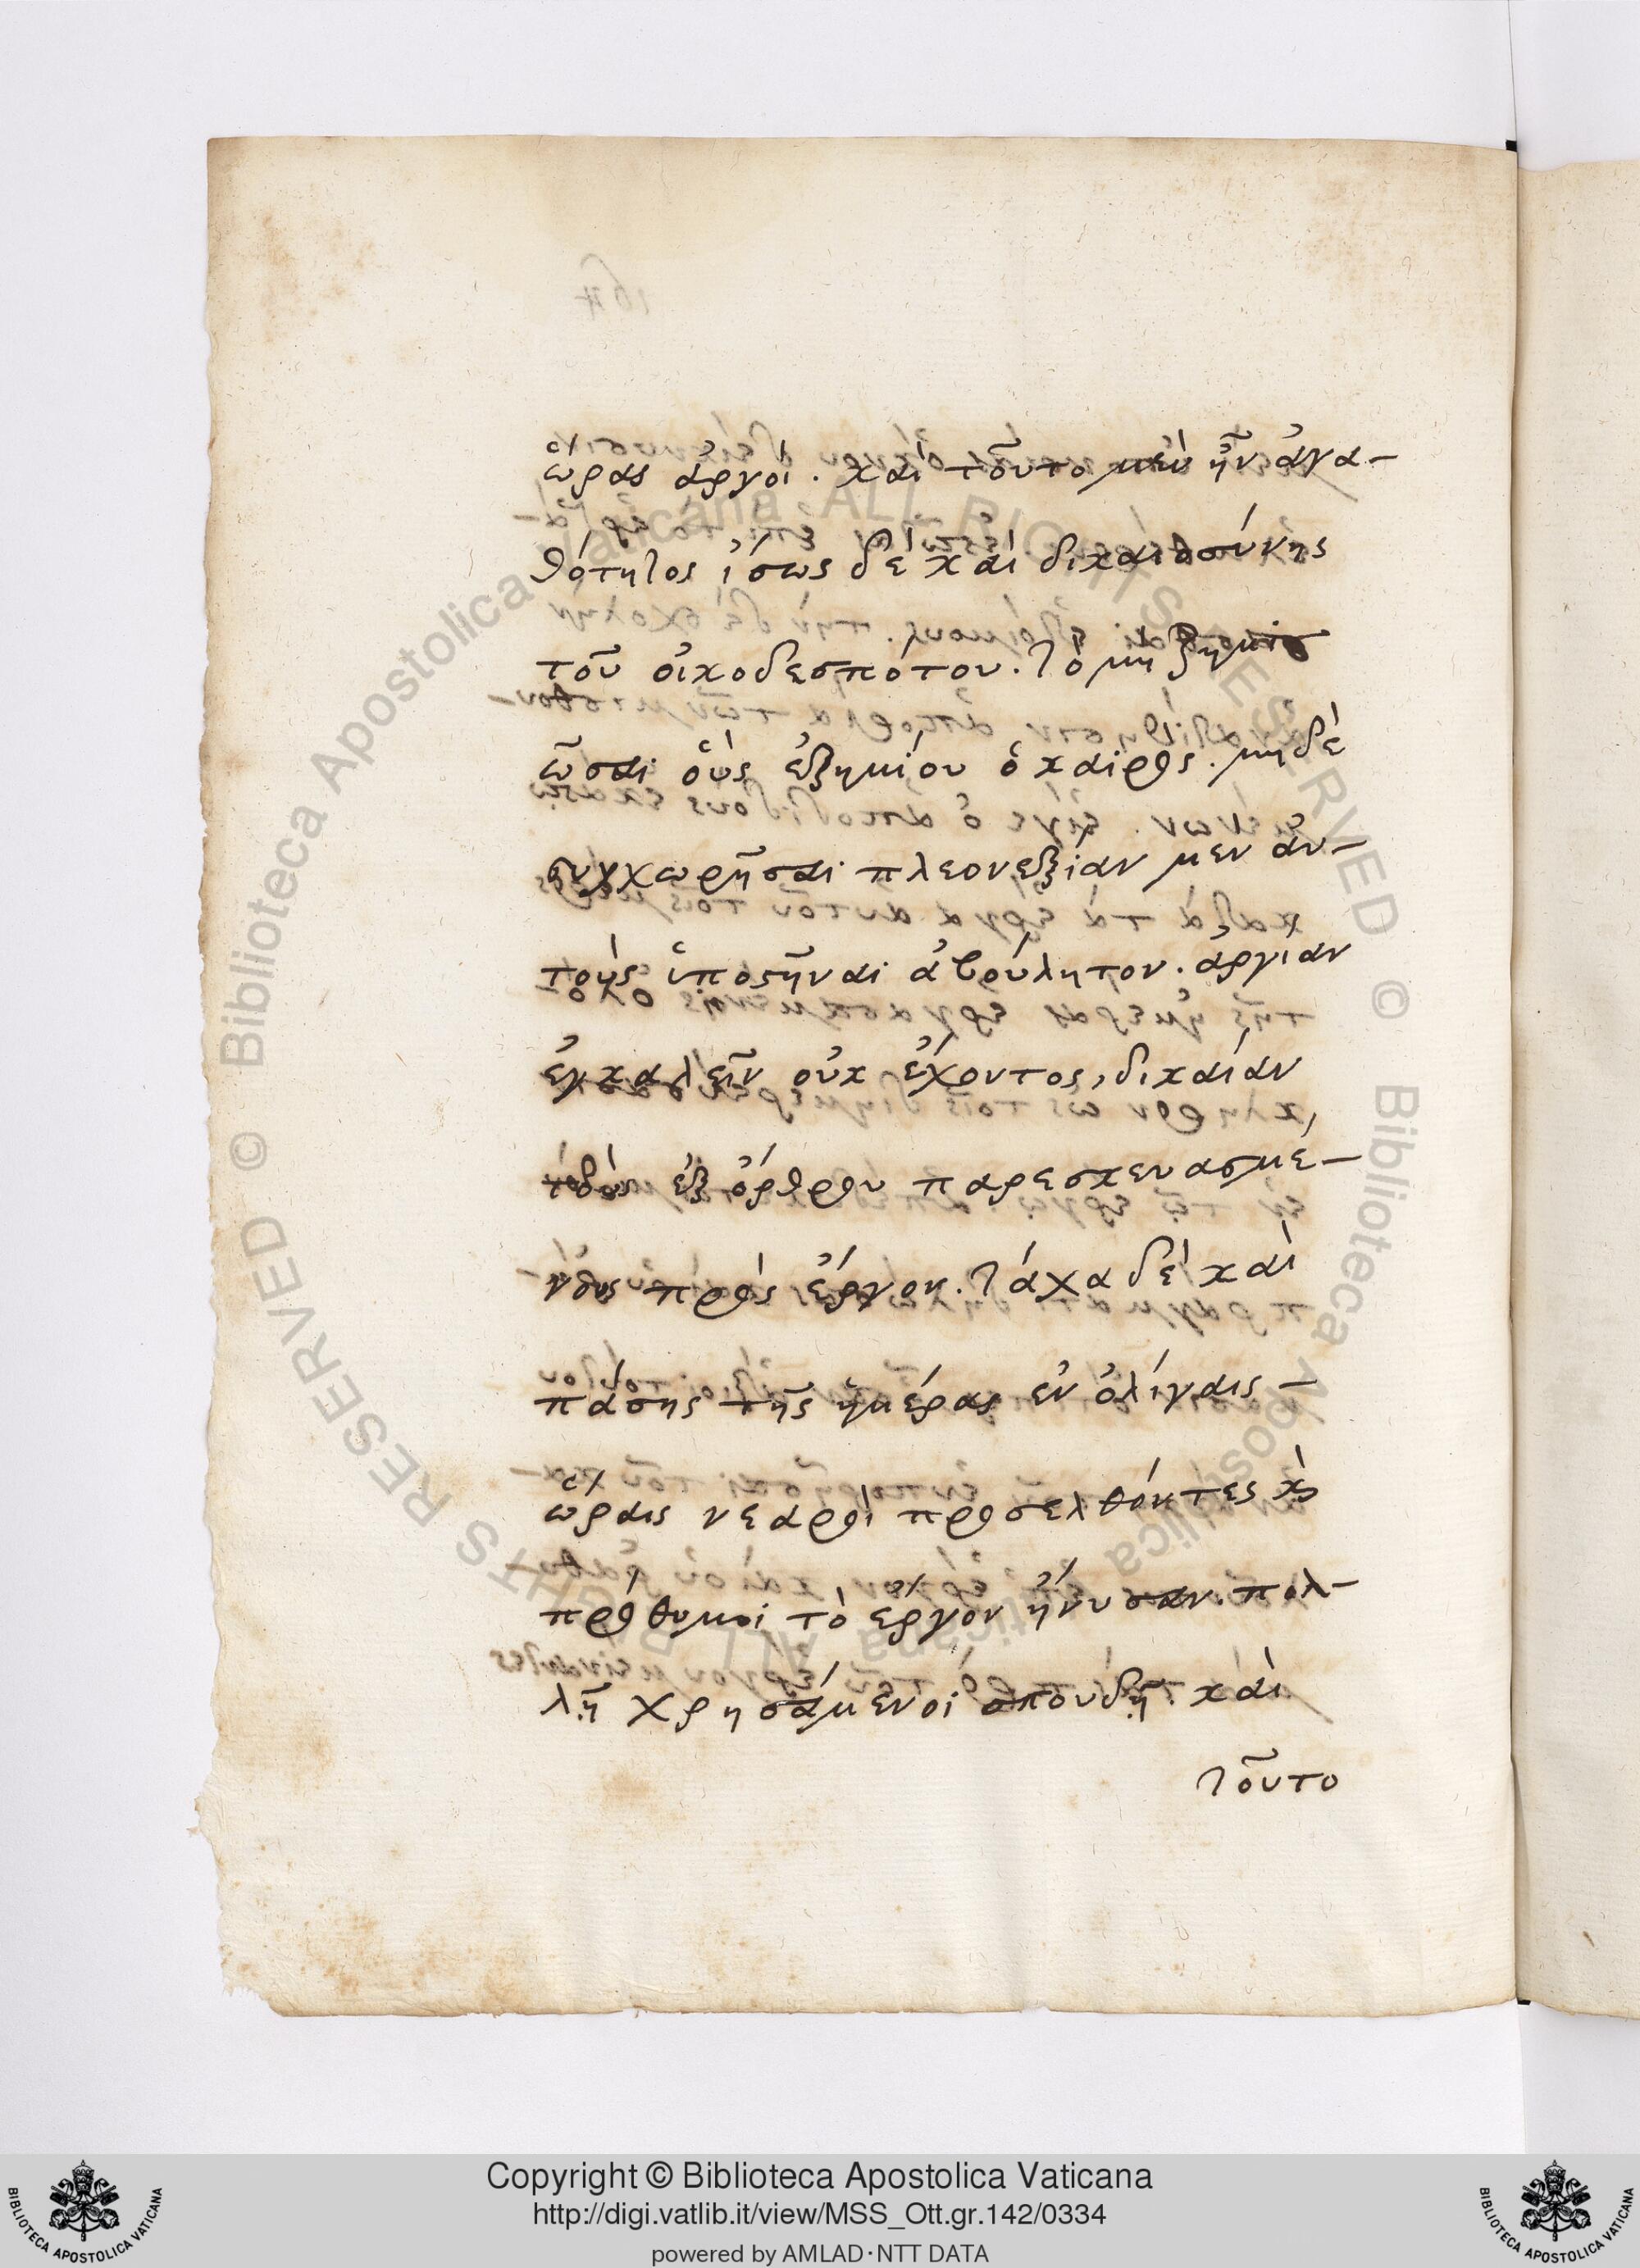 ὥρας ἀργοί. καὶ τοῦτο μὲν ἦν ἀγα-
θότητος ἴσως δὲ καὶ δικαιοσύνης
τοῦ οἰκοδεσπότου. τὸ μὴ ζημιο
ῶσαι οὓς ἐζημίου ὁ καιρὸς. μηδὲ
συγχωρῆσαι πλεονεξίαν μὲν αὐ-
τοὺς ὑποστῆναι ἀβούλητον. ἀργίαν
ἐγκαλεῖν οὐκ ἔχοντος, δικαίαν
τοὺς ἐξ ὄρθρου παρεσκευασμέ-
νους πρὸς ἔργον. τάχα δὲ καὶ
πάσης τῆς ἡμέρας ἐν ὀλίγαις -
ὥραις νεαροὶ προσελθόντες καὶ
πρόθυμοι τὸ ἔργον ἤνυσαν. πολ-
λῇ χρησάμενοι σπουδῇ. καὶ
τοῦτο
Copyright © Biblioteca Apostolica Vaticana
http://digi.vatlib.it/view/MSS_Ott.gr.142/0334
powered by AMLAD·NTT DATA